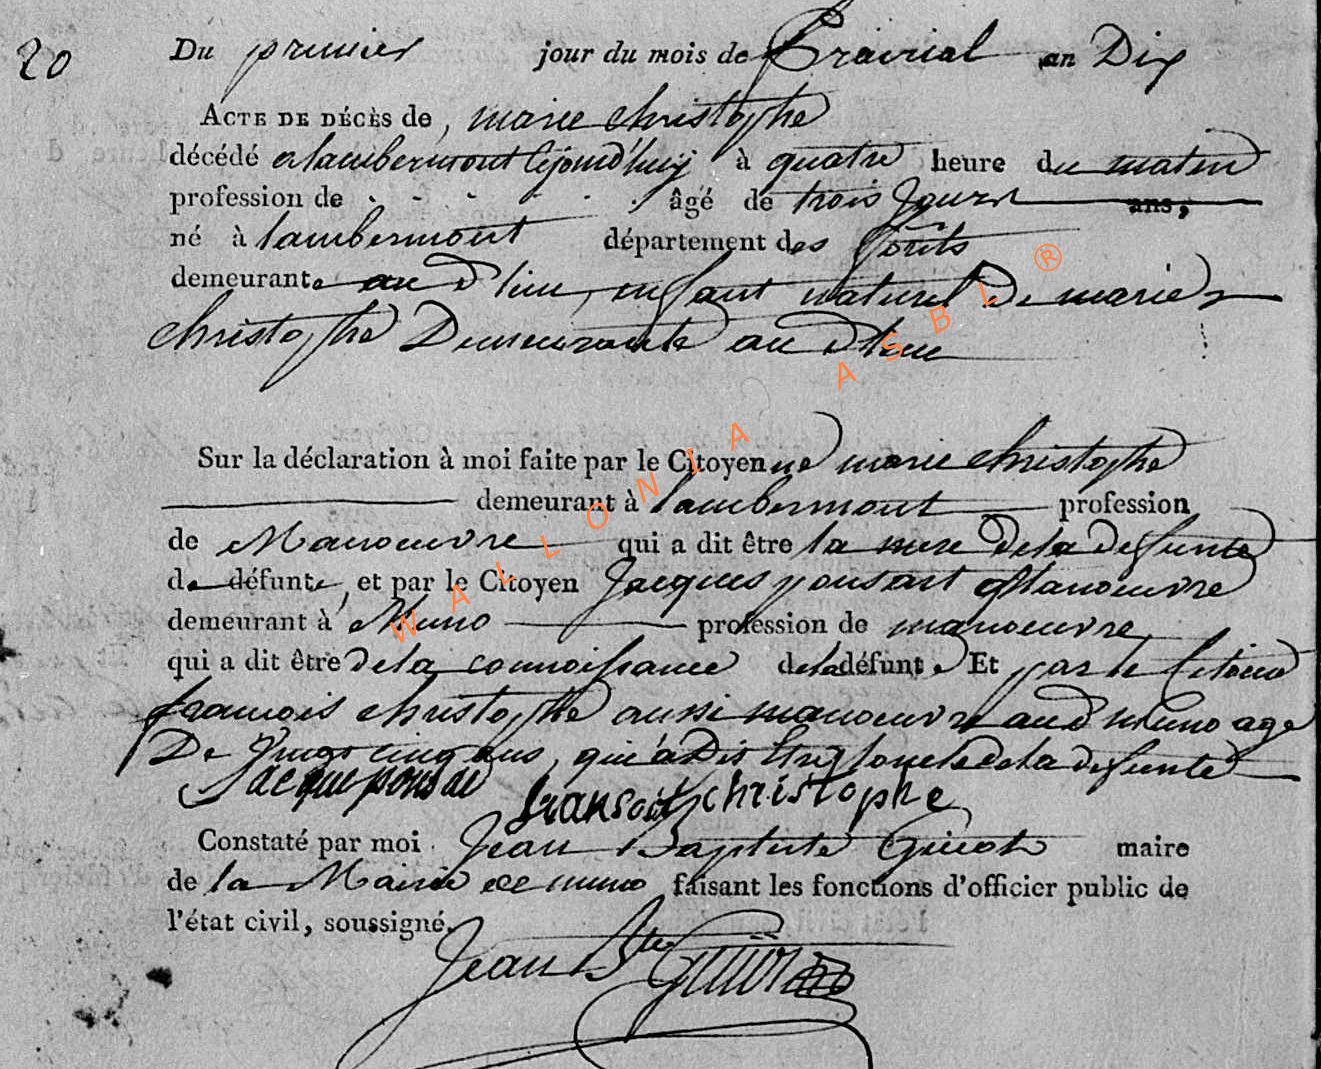 20 Du premier jour du mois de Prairial an Dix
ACTE DE DÉCÈS de, marie christophe
décédé a lambermont cejourd'huy à quatre heure du matin
profession de . - - . - . âgé de trois Jours ans,
né à lambermont département des forêts
demeurante au d lieu, enfant naturel De marie
christophe Demeurante au d lieu
Sur la déclaration à moi faite par le Citoyenne marie christophe
demeurant à lambermont profession
de Manoeuvre qui a dit être la mere De la defunte
de défunte, et par le Citoyen Jacques ponsart Manoeuvre
demeurant à Muno profession de manoeuvre
qui a dit être De la connoissance de la défunte Et par le Citoien
francois christophe aussi manoeuvre au d muno age
De Vingt cinq ans, qui a Dit Etre loncle de la defunte
Jacque ponsar fransois christophe
Constaté par moi Jean Baptiste Guiot maire
de la Mairie de muno faisant les fonctions d'officier public de
l'état civil, soussigné.
Jean Bte Guiot
WALLONIA ASBL ®